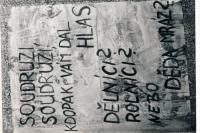 SOUDRUZI
SOUDRUZI!
KDOPAK VÁM DAL
HLAS
DĚLNÍCI?
ROLNÍCI?
NEBO
DĚDA MRÁZ?